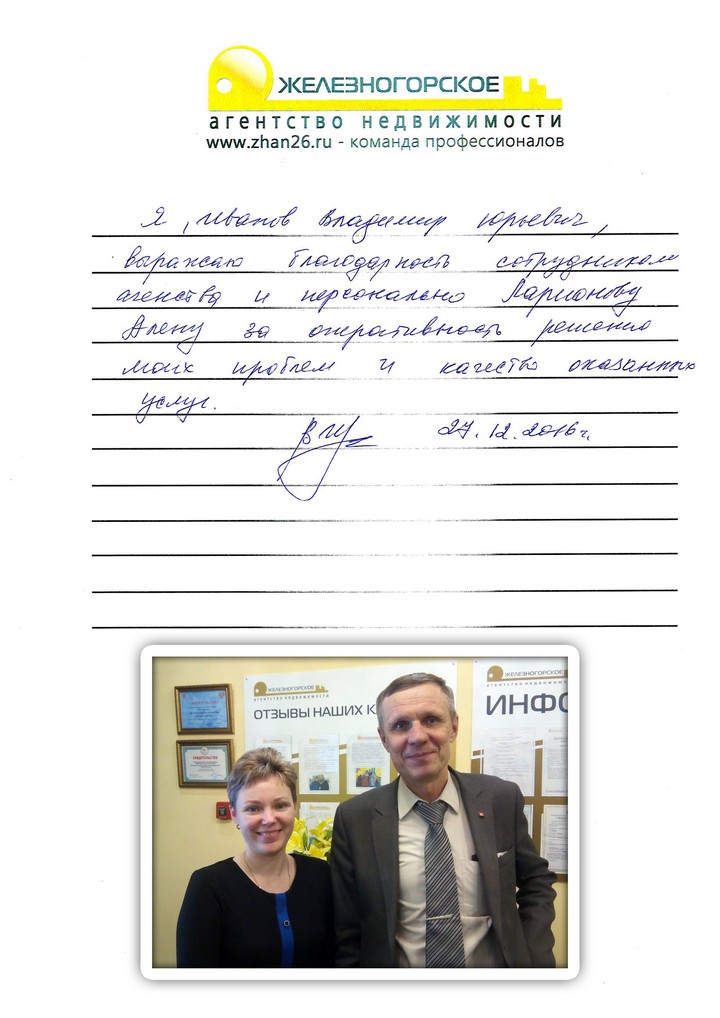 ЖЕЛЕЗНОГОРСКОЕ
агентство недвижимости
www.zhan26.ru - команда профессионалов
Я, Иванов Владимир Юрьевич,
выражаю благодарность сотрудникам
агенства и персонально Ларионову
Алену за оперативность решения
моих проблем и качество оказанных
услуг.
27.12.2016г.
ЖЕЛЕЗНОГОРСКОЕ
АГЕНТСТВО НЕДВИЖИМОСТИ
ОТЗЫВЫ НАШИХ К
ЖЕЛЕЗНОГОРСКОЕ
АГЕНТСТВО НЕДВИЖИМОСТИ
ИНФО